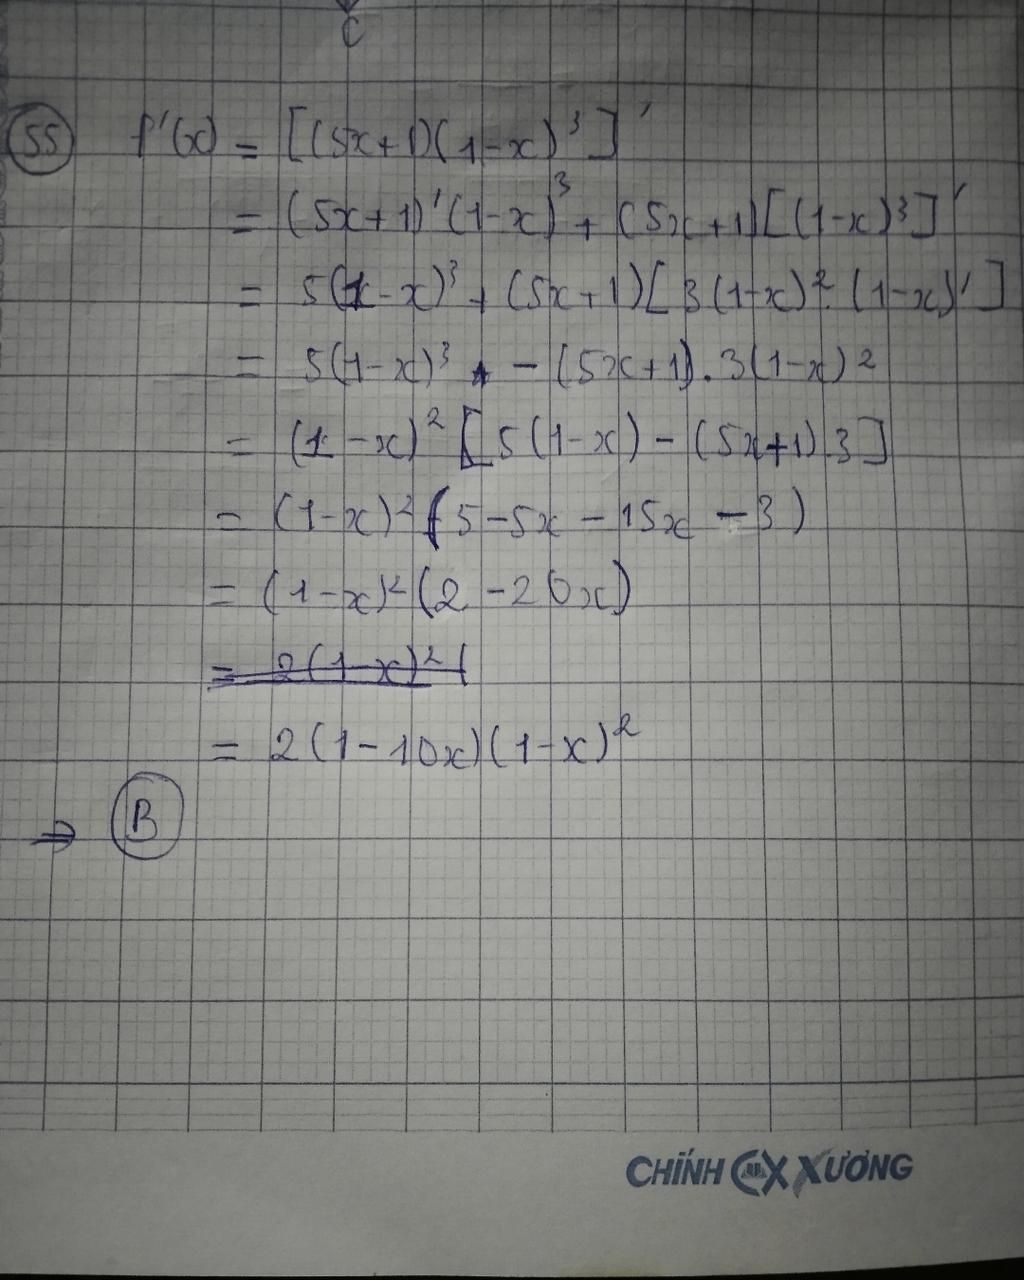 C
55 f'(x) = [(5x+1)(1-x)³]'
= (5x+1)'(1-x)³ + (5x+1)[(1-x)³]'
= 5(1-x)³ + (5x+1)[3(1-x)². (1-x)']
= 5(1-x)³ - (5x+1).3(1-x)²
= (1-x)² [5(1-x) - (5x+1).3]
= (1-x)² (5-5x-15x-3)
= (1-x)² (2-20x)
= 2(1-x)² (
= 2(1-10x)(1-x)²
⇒ B
CHÍNH XƯƠNG